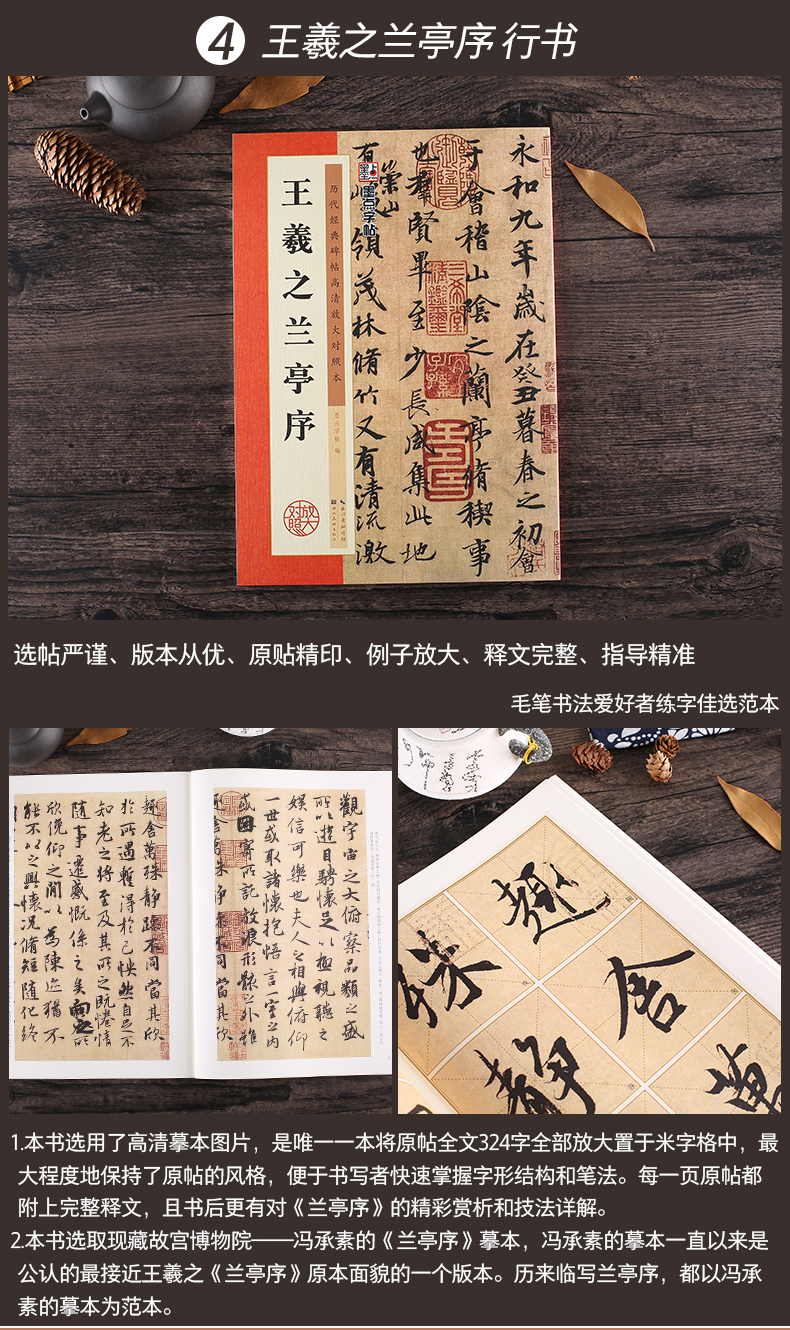 4 王羲之兰亭序 行书
王羲之兰亭序
历代经典碑帖高清放大对照本
墨点字帖 编
放大对照
墨点字帖
永和九年岁在癸丑暮春之初會
于會稽山陰之蘭亭脩稧事
也群賢畢至少長咸集此地
有崇山
領茂林脩竹又有清流激
选帖严谨、版本从优、原贴精印、例子放大、释文完整、指导精准
毛笔书法爱好者练字佳选范本
觀宇宙之大俯察品類之盛
所以遊目騁懷足以極視聽之
娱信可樂也夫人之相與俯仰
一世或取諸懷抱悟言一室之内
或因寄所託放浪形骸之外雖
趣舍萬殊静躁不同當其欣
趣舍萬殊静躁不同當其欣
於所遇暫得於己怏然自足不
知老之將至及其所之既惓情
隨事遷感慨係之矣向之所
欣俛仰之閒以為陳迹猶不
能不以之興懷況脩短隨化終
趣
殊 舍
静 萬
1.本书选用了高清摹本图片，是唯一一本将原帖全文324字全部放大置于米字格中，最
大程度地保持了原帖的风格，便于书写者快速掌握字形结构和笔法。每一页原帖都
附上完整释文，且书后更有对《兰亭序》的精彩赏析和技法详解。
2.本书选取现藏故宫博物院——冯承素的《兰亭序》摹本，冯承素的摹本一直以来是
公认的最接近王羲之《兰亭序》原本面貌的一个版本。历来临写兰亭序，都以冯承
素的摹本为范本。